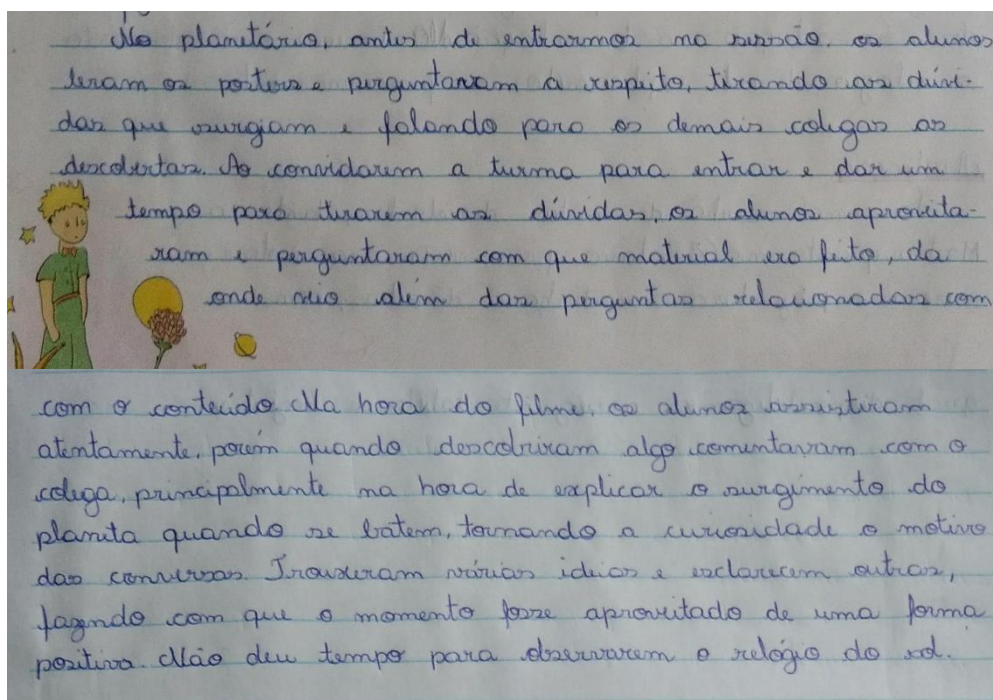 No planetário, antes de entrarmos na sessão, os alunos
leram os posters e perguntaram a respeito, tirando as dúvi-
das que surgiam e falando para os demais colegas as
descobertas. Ao convidarem a turma para entrar e dar um
tempo para tirarem as dúvidas, os alunos aproveita-
ram e perguntaram com que material era feito, da
onde veio além das perguntas relacionadas com
com o conteúdo. Na hora do filme, os alunos assistiram
atentamente, porém quando descobriram algo comentavam com o
colega, principalmente na hora de explicar o surgimento do
planeta quando se batem, tornando a curiosidade o motivo
das conversas. Trouxeram várias ideias e esclarecem outras,
fazendo com que o momento fosse aproveitado de uma forma
positiva. Não deu tempo para observarem o relógio do sol.